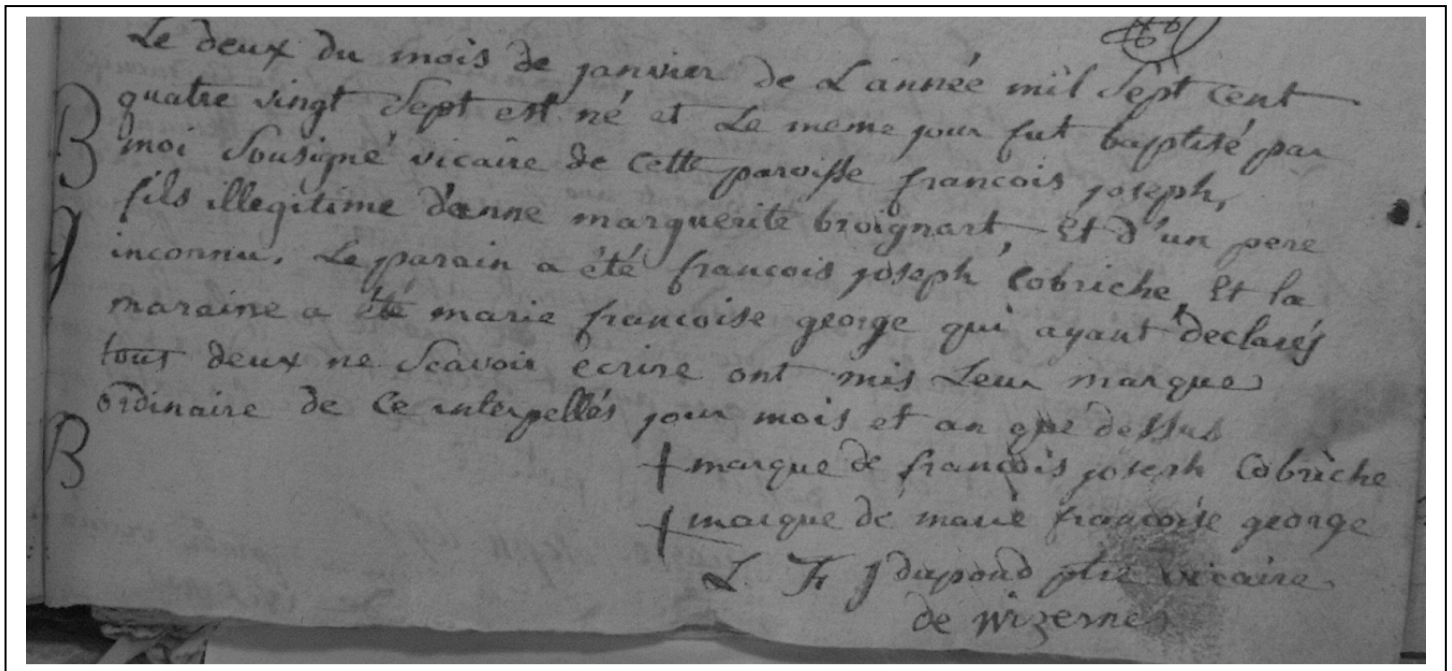 Le deux du mois de janvier de L'année mil sept cent
quatre vingt sept est né et Le meme jour fut baptisé par
moi sousigné vicaire de cette paroisse francois joseph,
fils illegitime d'anne marguerite broignart, Et d'un pere
inconnu. Le parain a été francois joseph Cobriche, Et la
maraine a été marie francoise george qui ayant declarés
tous deux ne scavoir écrire ont mis Leur marque
ordinaire de ce interpellés jour mois et an que dessus
B
J
B
marque de françois joseph Cobriche
marque de marie françoise george
L. F. J dupond ptre vicaire
de Wizernes